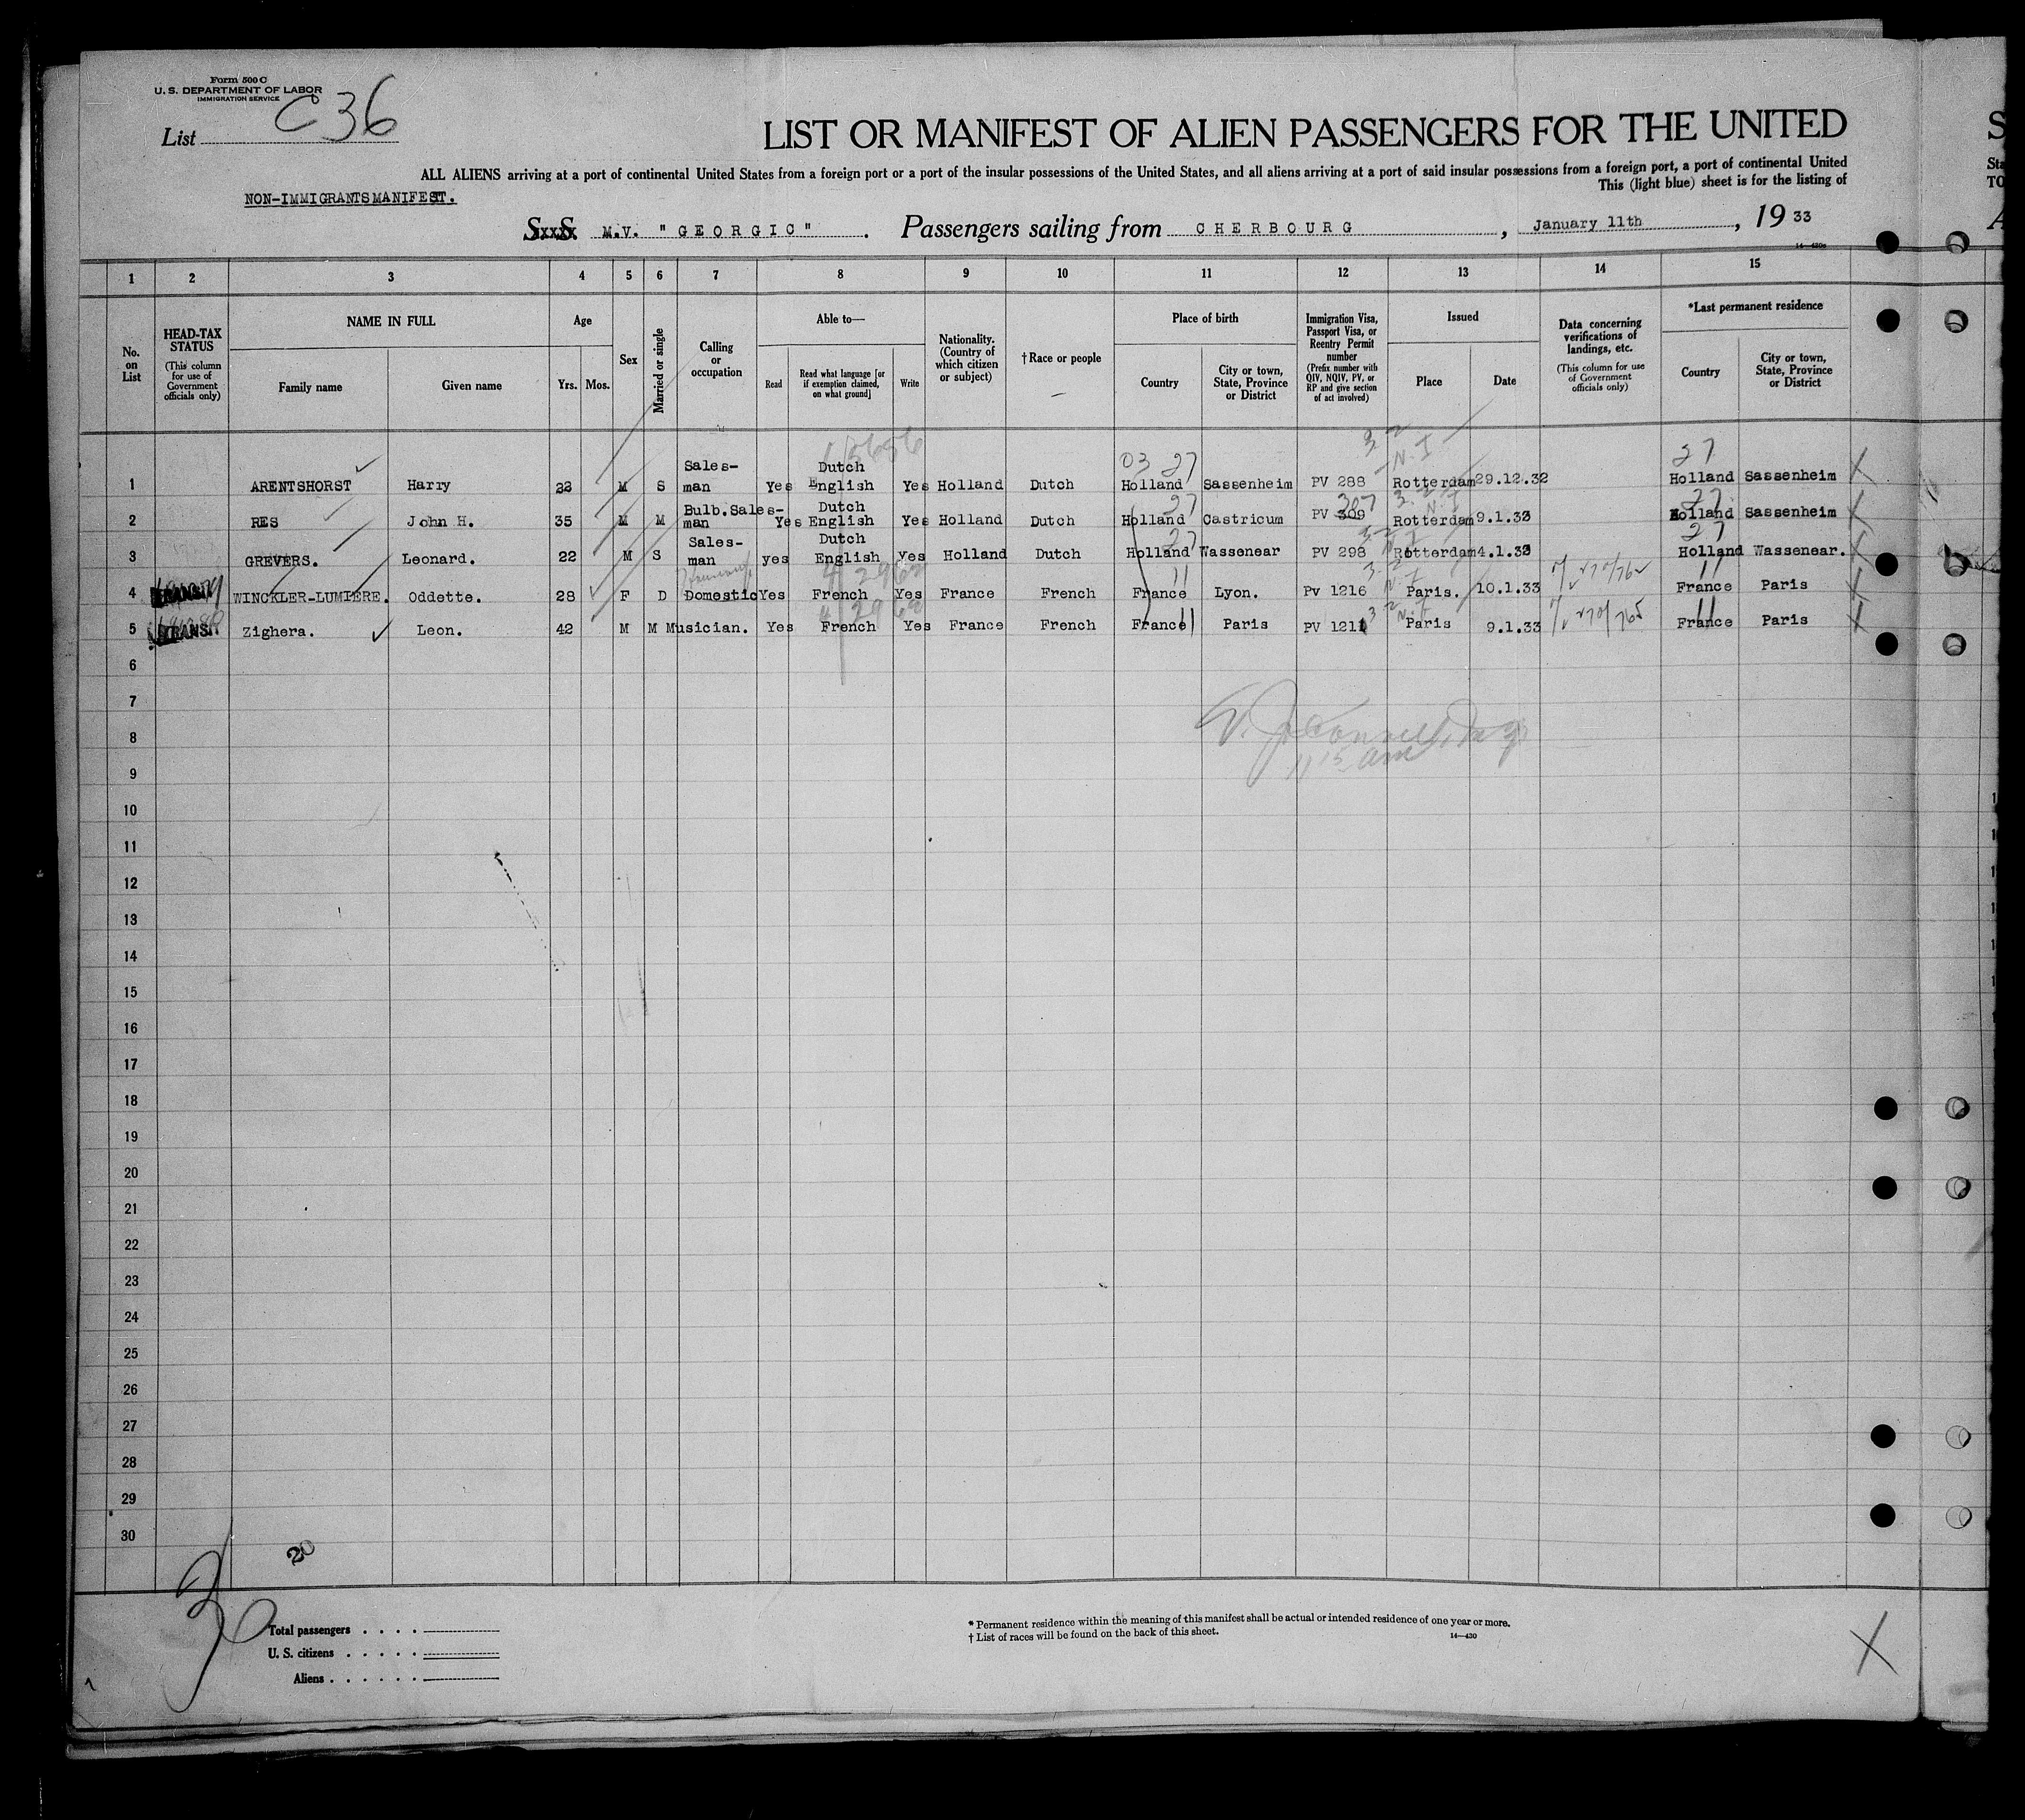 Form 500 C
U. S. DEPARTMENT OF LABOR
IMMIGRATION SERVICE
List C 36
LIST OR MANIFEST OF ALIEN PASSENGERS FOR THE UNITED
ALL ALIENS arriving at a port of continental United States from a foreign port or a port of the insular possessions of the United States, and all aliens arriving at a port of said insular possessions from a foreign port, a port of continental United
This (light blue) sheet is for the listing of
NON-IMMIGRANTS MANIFEST.
S.S. M.V. "GEORGIC". Passengers sailing from CHERBOURG, January 11th, 19 33
1 2 3 4 5 6 7 8 9 10 11 12 13 14 15
No. on List
HEAD-TAX STATUS
(This column for use of Government officials only)
NAME IN FULL
Family name
Given name
Age
Yrs. Mos.
Sex
Married or single
Calling or occupation
Able to—
Read
Read what language [or if exemption claimed, on what ground]
Write
Nationality. (Country of which citizen or subject)
† Race or people
Place of birth
Country
City or town, State, Province or District
Immigration Visa, Passport Visa, or Reentry Permit number
(Prefix number with QIV, NQIV, PV, or RP and give section of act involved)
Issued
Place
Date
Data concerning verifications of landings, etc.
(This column for use of Government officials only)
*Last permanent residence
Country
City or town, State, Province or District
1 ARENTSHORST Harry 23 M S Sales-man Yes Dutch English Yes Holland Dutch Holland Sassenheim PV 288 Rotterdam 29.12.32 Holland Sassenheim
2 RES John H. 35 M M Bulb.Sales-man Yes Dutch English Yes Holland Dutch Holland Castricum PV 309 307 Rotterdam 9.1.33 Holland Sassenheim
3 GREVERS. Leonard. 22 M S Sales-man yes Dutch English Yes Holland Dutch Holland Wassenear PV 298 Rotterdam 4.1.33 Holland Wassenear.
4 TRANSIT WINCKLER-LUMIERE. Oddette. 28 F D Domestic Yes French Yes France French France Lyon. Pv 1216 Paris. 10.1.33 France Paris
5 TRANSIT Zighera. Leon. 42 M M Musician. Yes French Yes France French France Paris PV 1211 Paris 9.1.33 France Paris
6
7
8
9
11 15 am
10
11
12
13
14
15
16
17
18
19
20
21
22
23
24
25
26
27
28
29
30
20
30
Total passengers
U. S. citizens
Aliens
* Permanent residence within the meaning of this manifest shall be actual or intended residence of one year or more.
† List of races will be found on the back of this sheet.
14—430